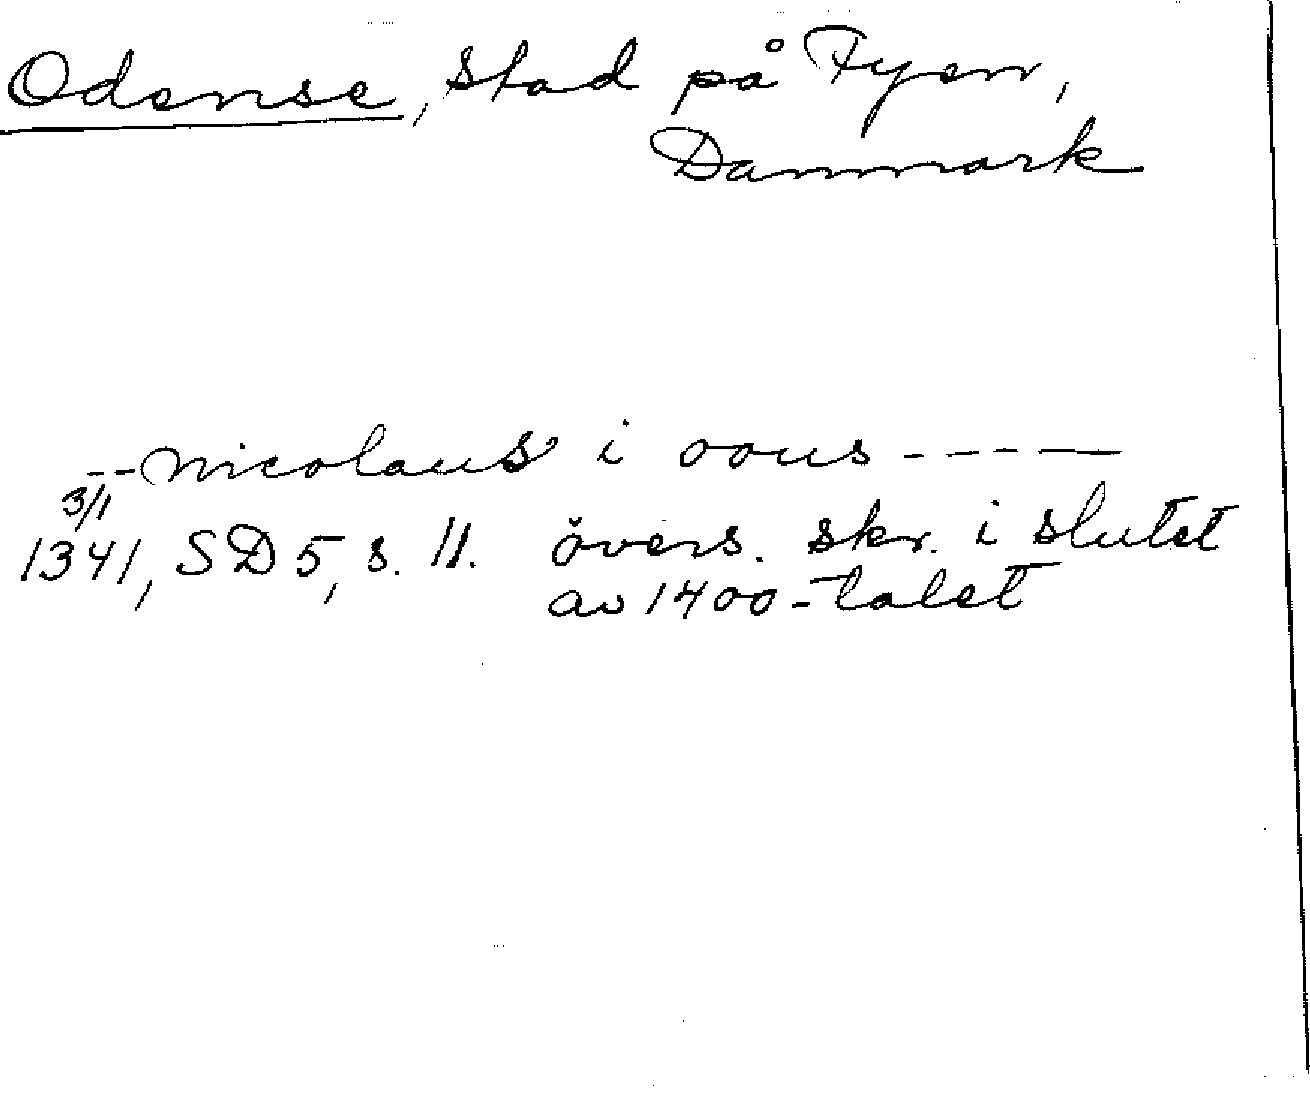 Odense, stad på Fyen,
Danmark
-- Nicolaus i oous -----
3/1
1341, SD 5, s. 11. övers. skr. i slutet
av 1400-talet